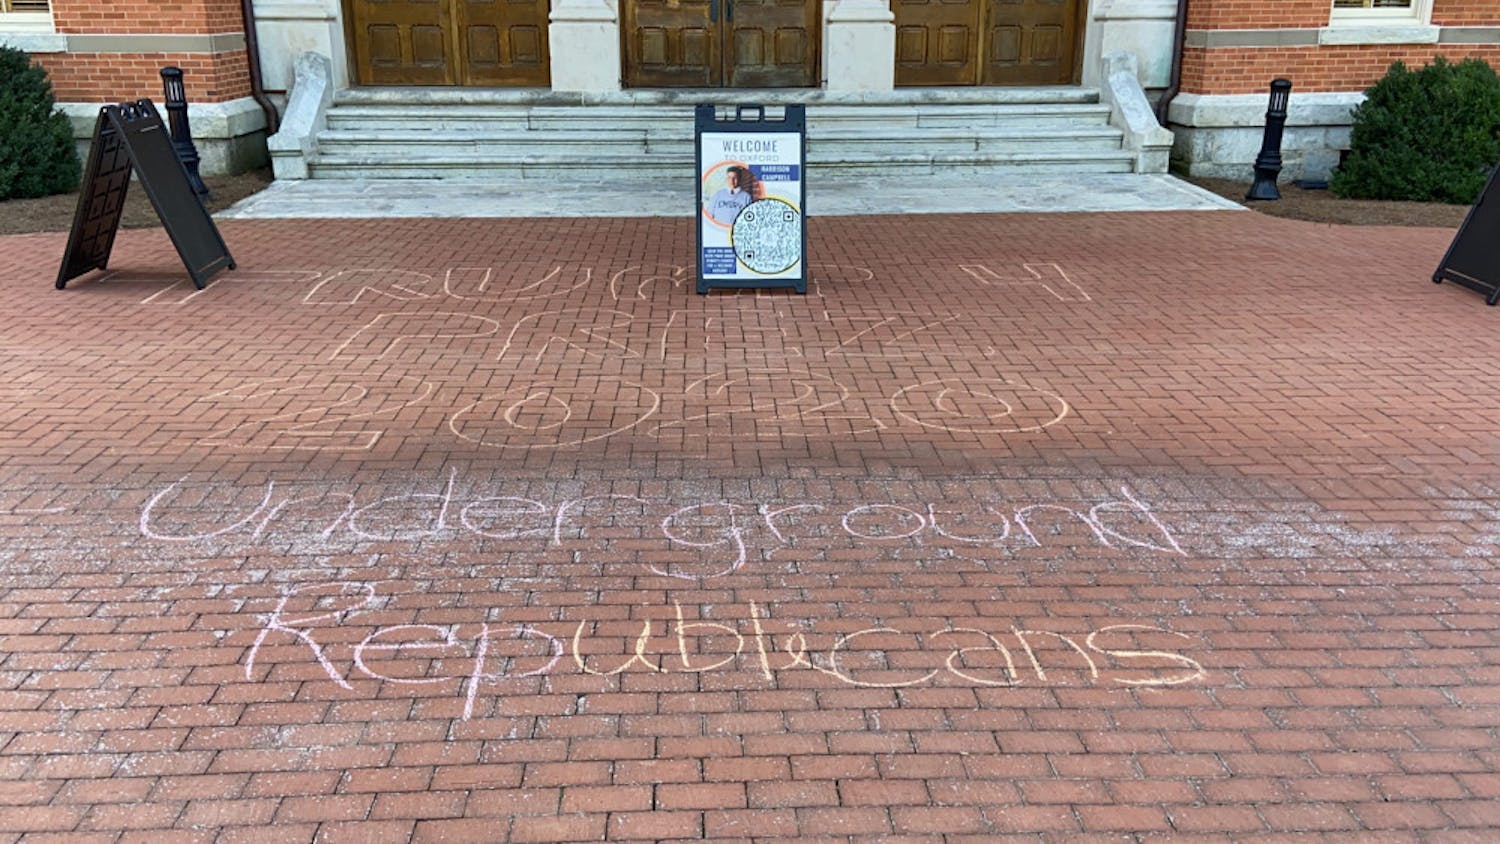 WELCOME
TO OXFORD
HARRISON
CAMPBELL
TRUMP 4
PREZ
2020
Underground
Republicans